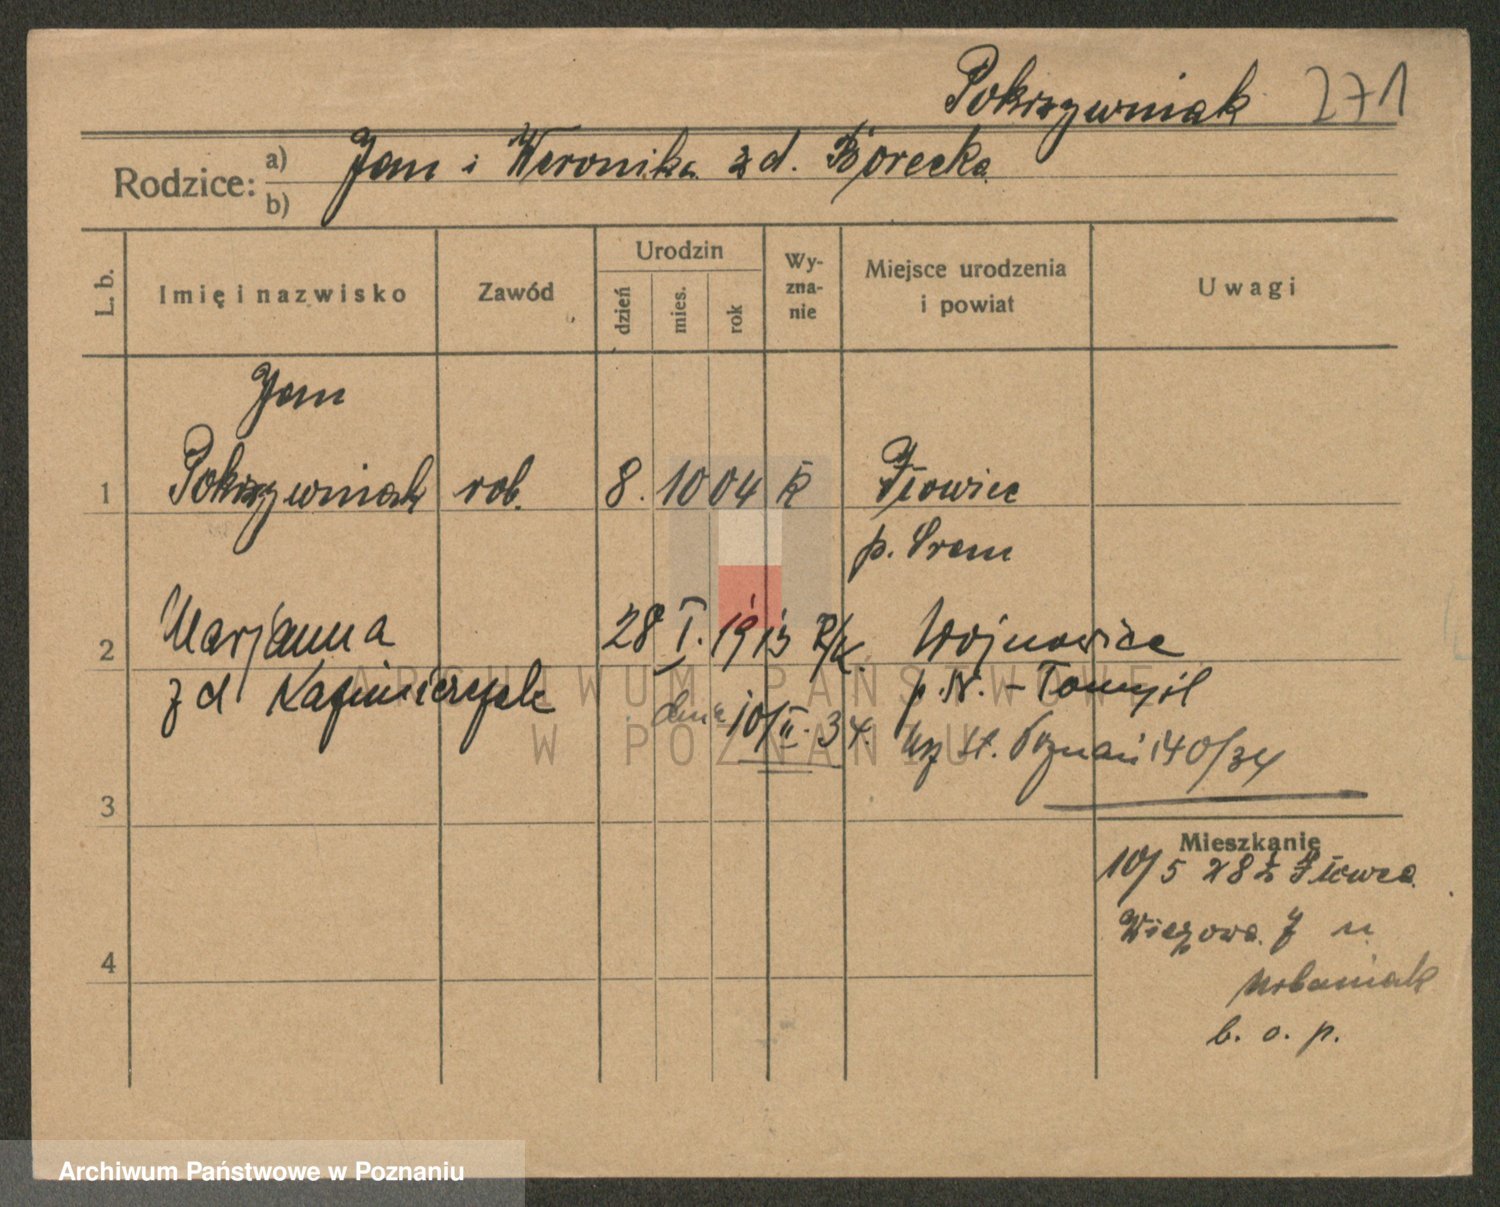 Pokrzywniak 271
Rodzice: a) Jan i Weronika z d. Borecka
b)
L. b.
Imię i nazwisko
Zawód
Urodzin
dzień
mies.
rok
Wy-
zna-
nie
Miejsce urodzenia
i powiat
Uwagi
Jan
1 Pokrzywniak rob. 8. 10 04 k Iłowiec
p. Śrem
2 Marjanna 28 I. 1913 R/k. Wojnowice
z d Kaźmierczak p. N.-Tomyśl
dnia 10/II. 34. st. Poznań 140/34
3
Mieszkanie
10/5 28 z Iłowca
Wiązowa 7 u
4
Urbaniak
b. o. p.
ARCHIWUM PAŃSTWOWE
W POZNANIU
Archiwum Państwowe w Poznaniu